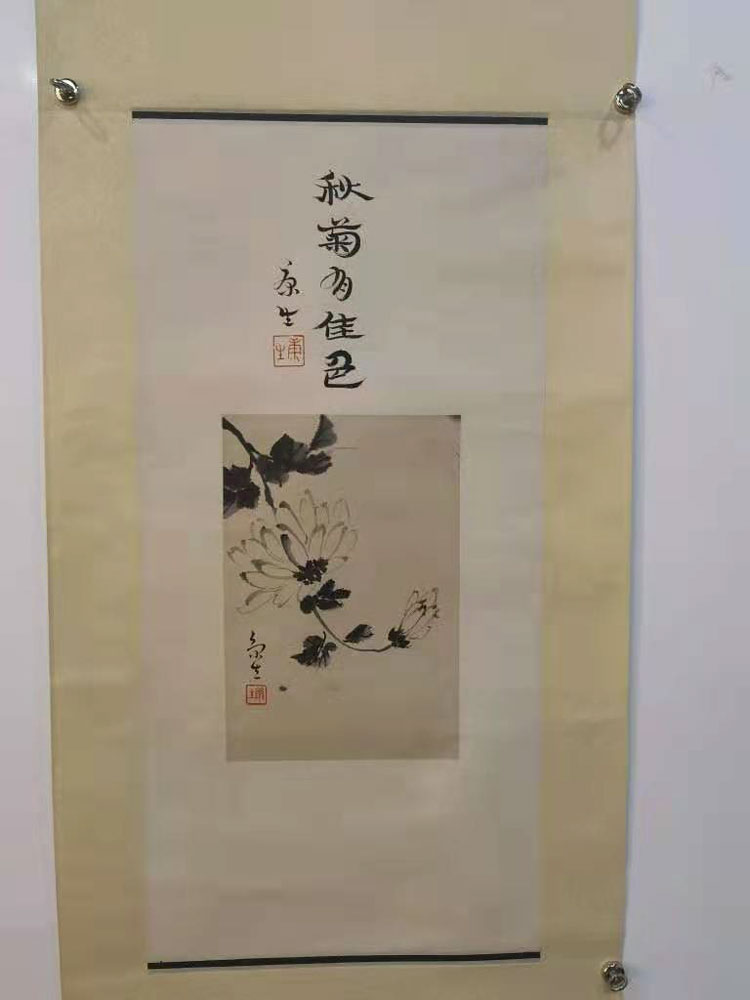 秋菊有佳色
康生
康生
康生